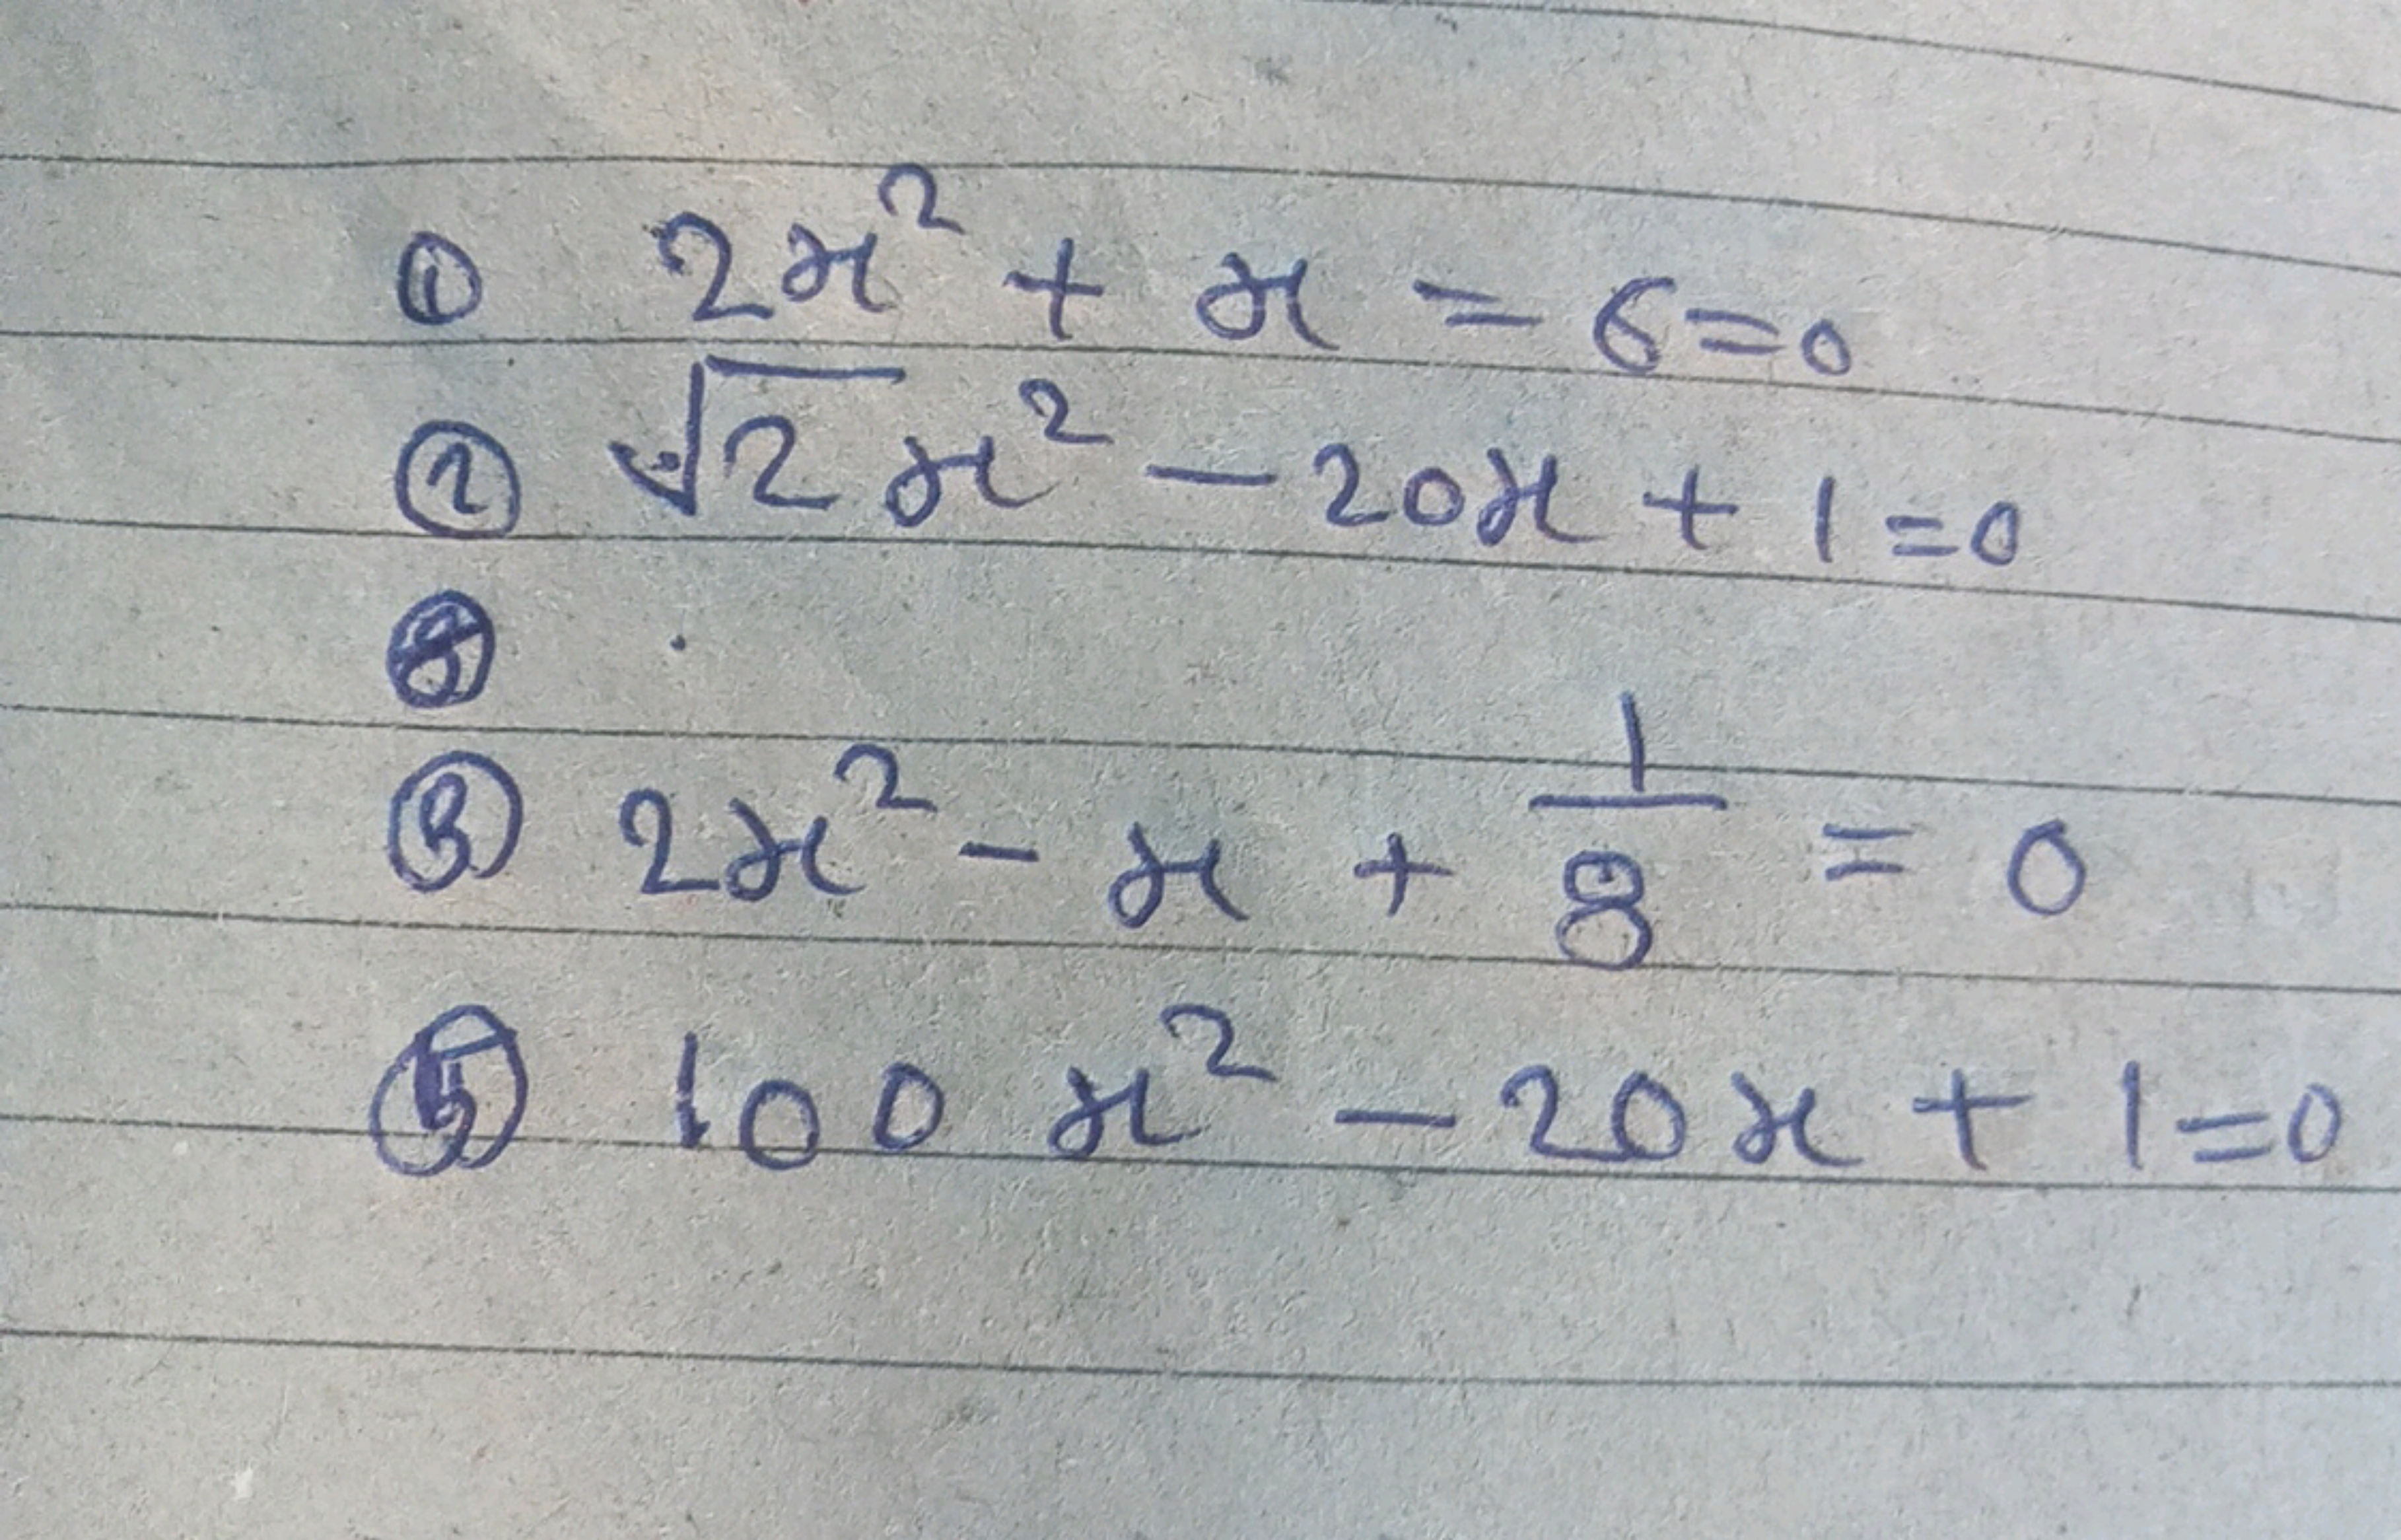 ① 2x² + x = 6=0
② √2 x² - 20x + 1=0
③ 2x² - x + 1/8 = 0
⑤ 100 x² - 20x + 1=0